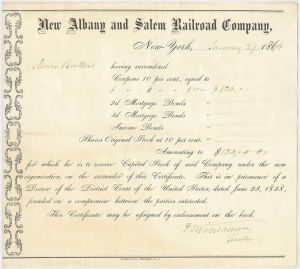 New Albany and Salem Railroad Company,
New-York, January 27 1864
having surrendered
Coupons 10 per cent., equal to
$ " $ " $120,
2d Mortgage Bonds "
3d Mortgage Bonds "
Income Bonds "
Shares Original Stock at 10 per cent "
Amounting to $120,
for which he is to receive Capital Stock of said Company under the new
organization, on the surrender of this Certificate. This is in pursuance of a
Decree of the District Court of the United States, dated June 23, 1858,
founded on a compromise between the parties interested.
This Certificate may be assigned by endorsement on the back.